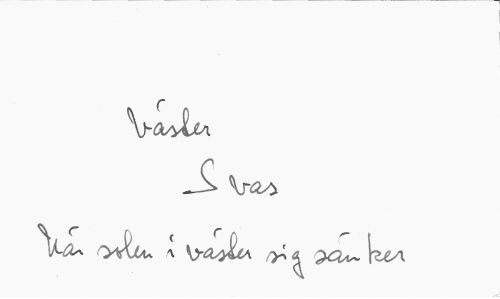 Väster
S vas
När solen i väster sig sänker